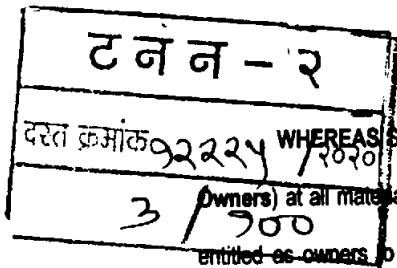 ट न न - २
दस्त क्रमांक १२२२५ / २०२०
WHEREAS
Owners) at all
3 / १००
entitled as owners to